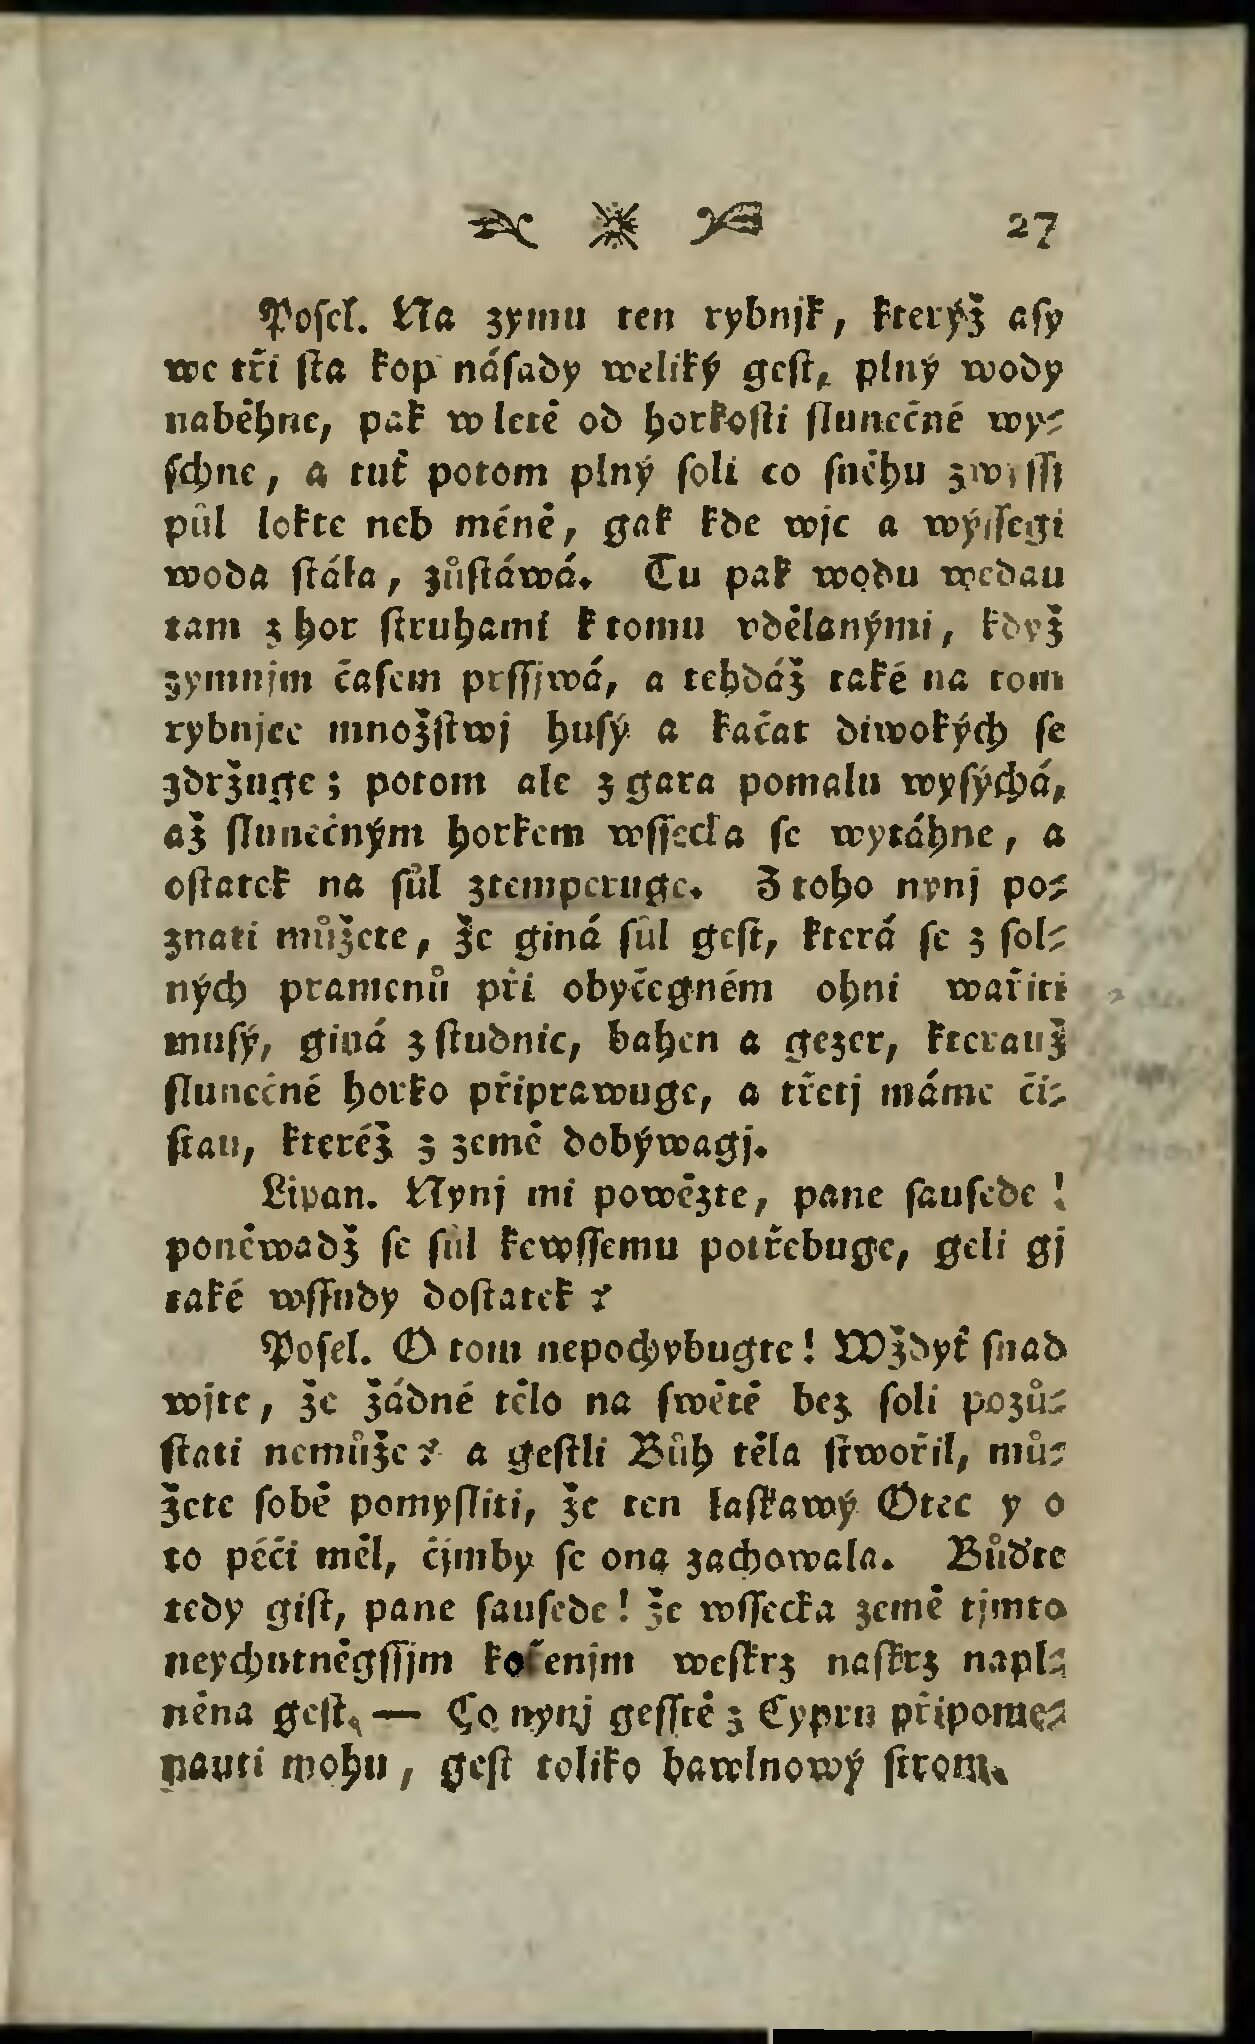 27
Posel. Na zymu ten rybnjk, kterýž asy
we tři sta kop násady weliký gest, plný wody
naběhne, pak w letě od horkosti slunečné wy-
schne, a tuť potom plný soli co sněhu zwýssj
půl lokte neb méně, gak kde wjc a wýssegi
woda stála, zůstáwá. Tu pak wodu wedau
tam z hor struhami k tomu vdělanými, když
zymnjm časem prssjwá, a tehdáž také na tom
rybnjce množstwj husý a kačat diwokých se
zdržuge; potom ale z gara pomalu wysýchá,
až slunečným horkem wssecka se wytáhne, a
ostatek na sůl ztemperuge. Z toho nynj po-
znati můžete, že giná sůl gest, která se z sol-
ných pramenů při obyčegném ohni wařiti
musý, giná z studnic, bahen a gezer, kterauž
slunečné horko připrawuge, a třetj máme či-
stau, kteréž z země dobýwagj.
Lipan. Nynj mi powězte, pane sausede!
poněwadž se sůl kewssemu potřebuge, geli gj
také wssudy dostatek?
Posel. O tom nepochybugte! Wždyť snad
wjte, že žádné tělo na swětě bez soli pozů-
stati nemůže? a gestli Bůh těla stwořil, mů-
žete sobě pomysliti, že ten laskawý Otec y o
to péči měl, čjmby se ona zachowala. Buďte
tedy gist, pane sausede! že wssecka země tjmto
neychutněgssjm kořenjm weskrz naskrz napl-
něna gest. — Co nynj gesstě z Cypru připome-
nauti mohu, gest toliko bawlnowý strom.